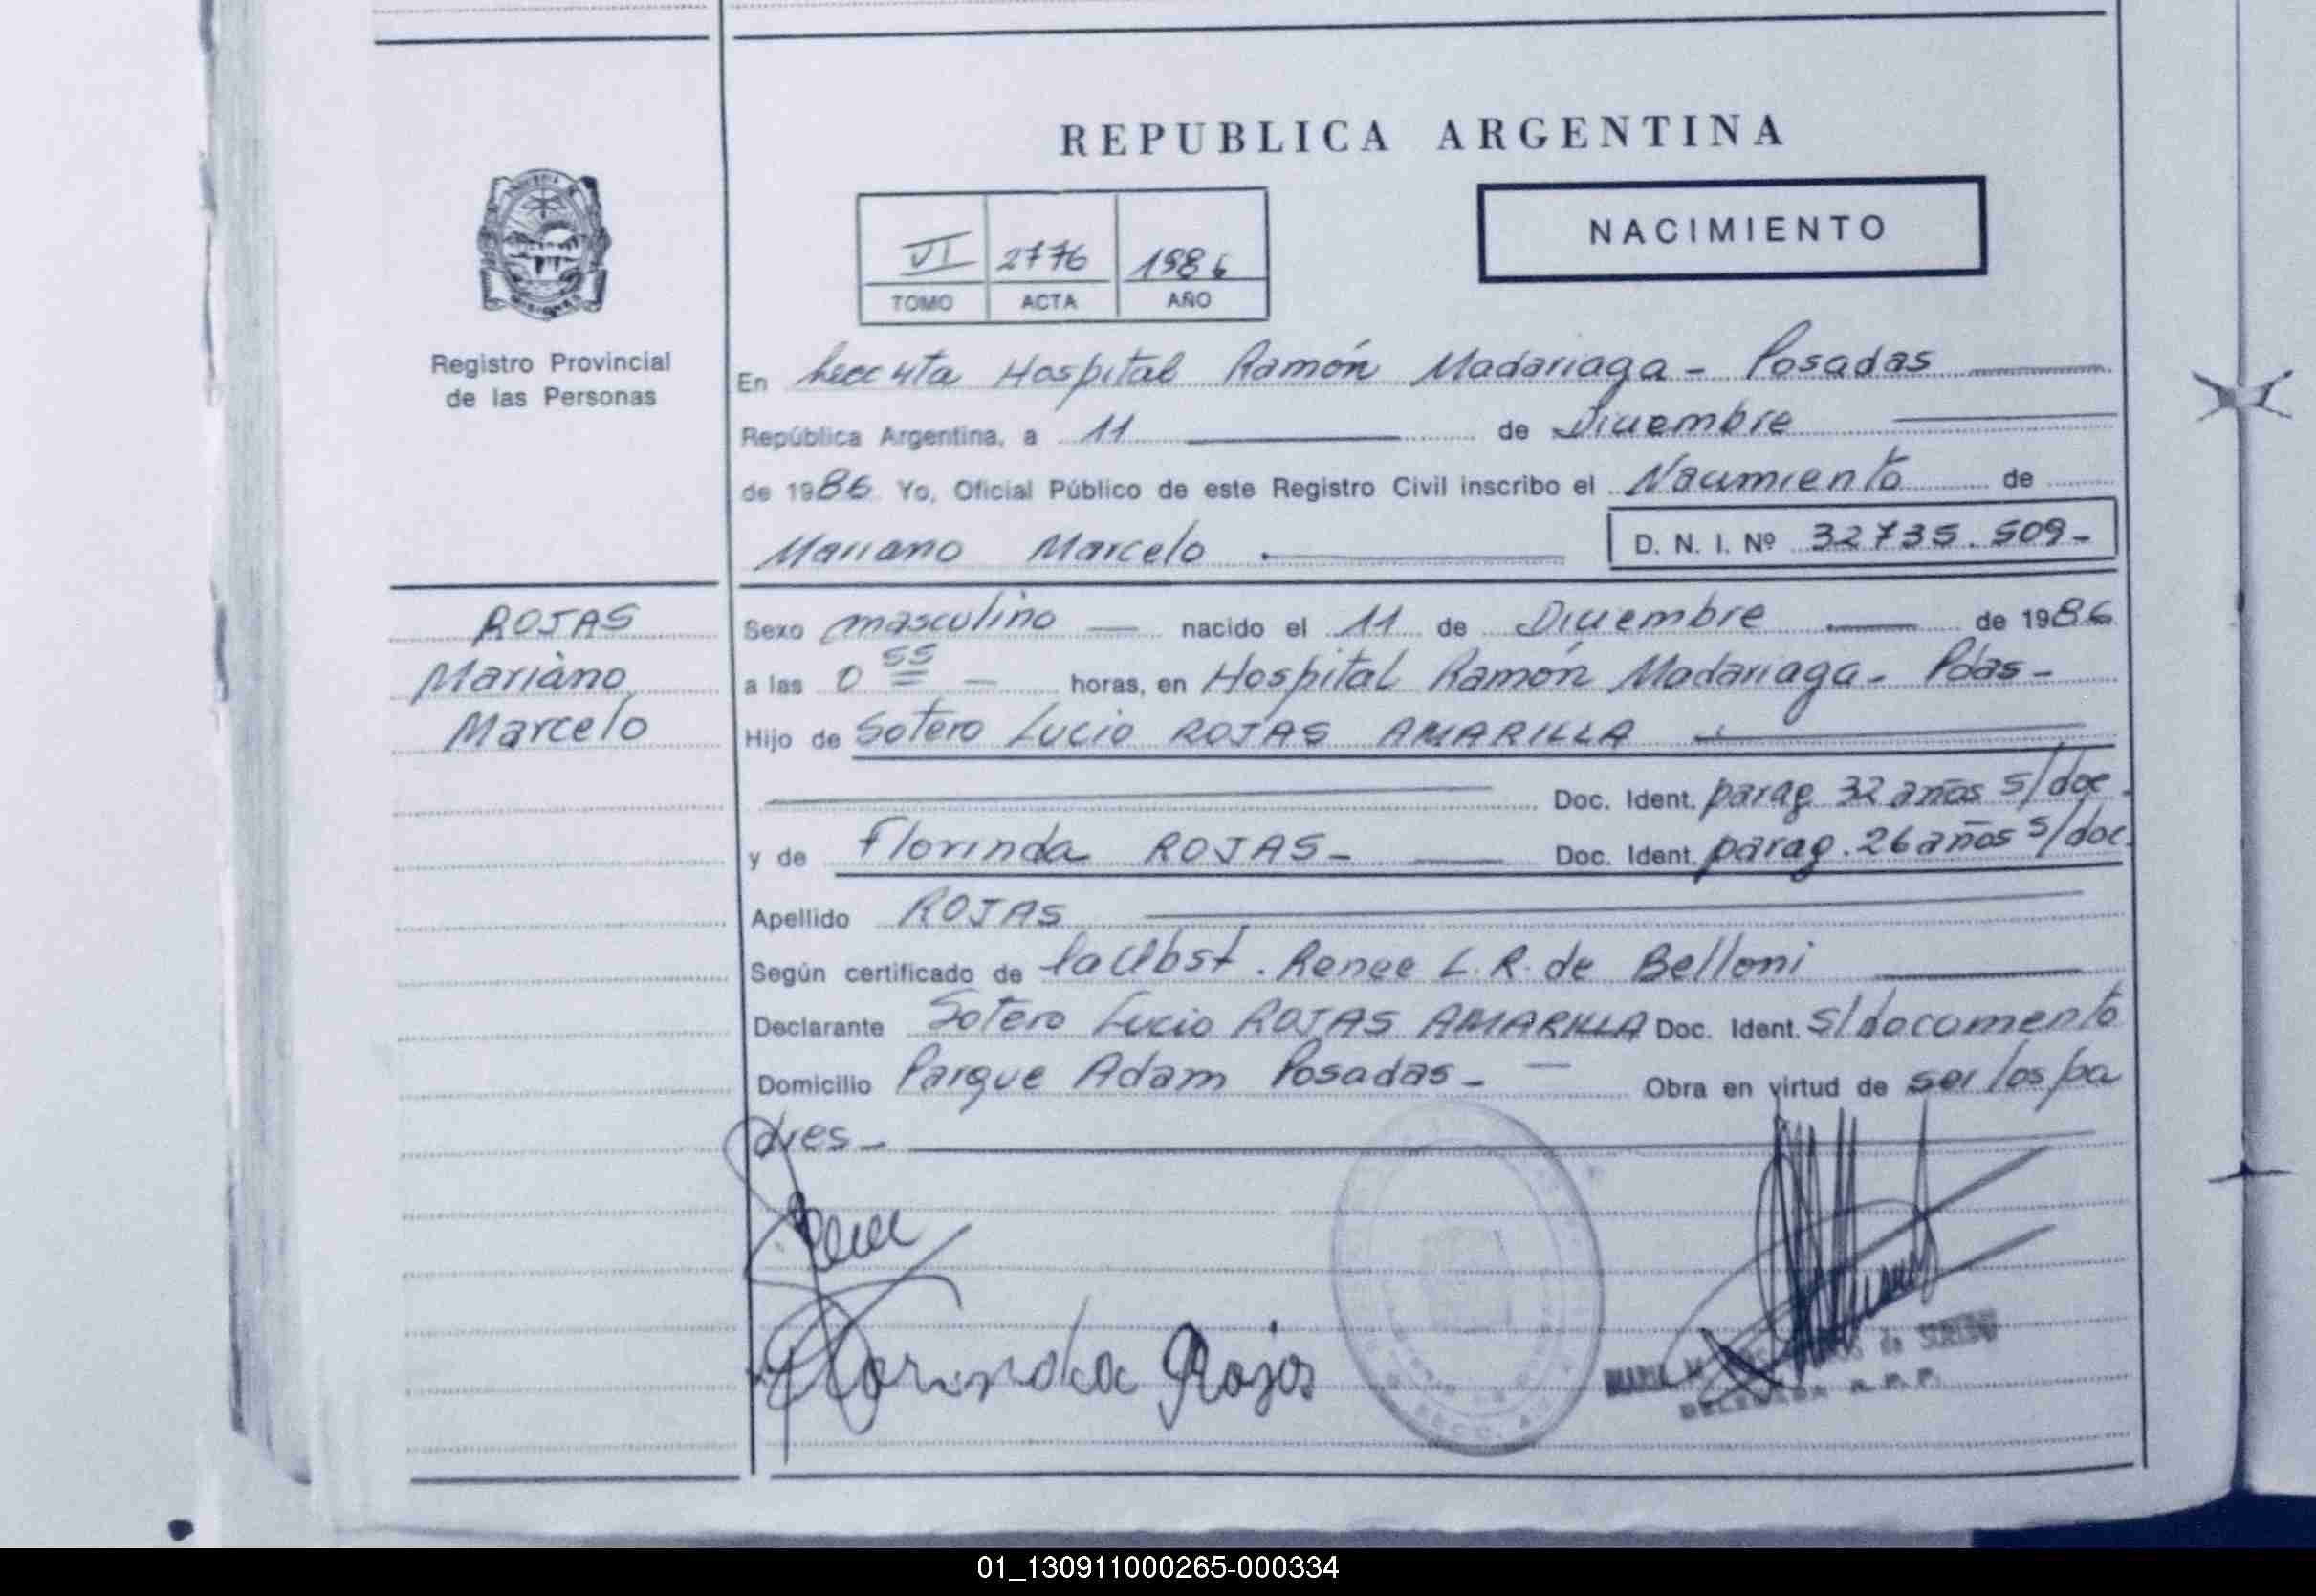 REPUBLICA ARGENTINA
NACIMIENTO
VI 2776 1986
TOMO ACTA AÑO
Registro Provincial
de las Personas
En Secc 4ta Hospital Ramón Madariaga - Posadas
República Argentina, a 11 de Diciembre
de 1986 Yo, Oficial Público de este Registro Civil inscribo el Nacimiento de
Mariano Marcelo D. N. I. Nº 32735.509-
ROJAS
Mariano
Marcelo
Sexo masculino nacido el 11 de Diciembre de 1986
a las 0 55 horas, en Hospital Ramón Madariaga - Pdas -
Hijo de Sotero Lucio ROJAS AMARILLA
Doc. Ident. parag 32 años s/doc.
y de Florinda ROJAS - Doc. Ident. parag. 26 años s/doc.
Apellido ROJAS
Según certificado de la Obst. Renee L. R. de Belloni
Declarante Sotero Lucio ROJAS AMARILLA Doc. Ident. s/documento
Domicilio Parque Adam Posadas - Obra en virtud de ser los pa
dres -
Florinda Rojas
DELEGADA R. P. P.
01_130911000265-000334